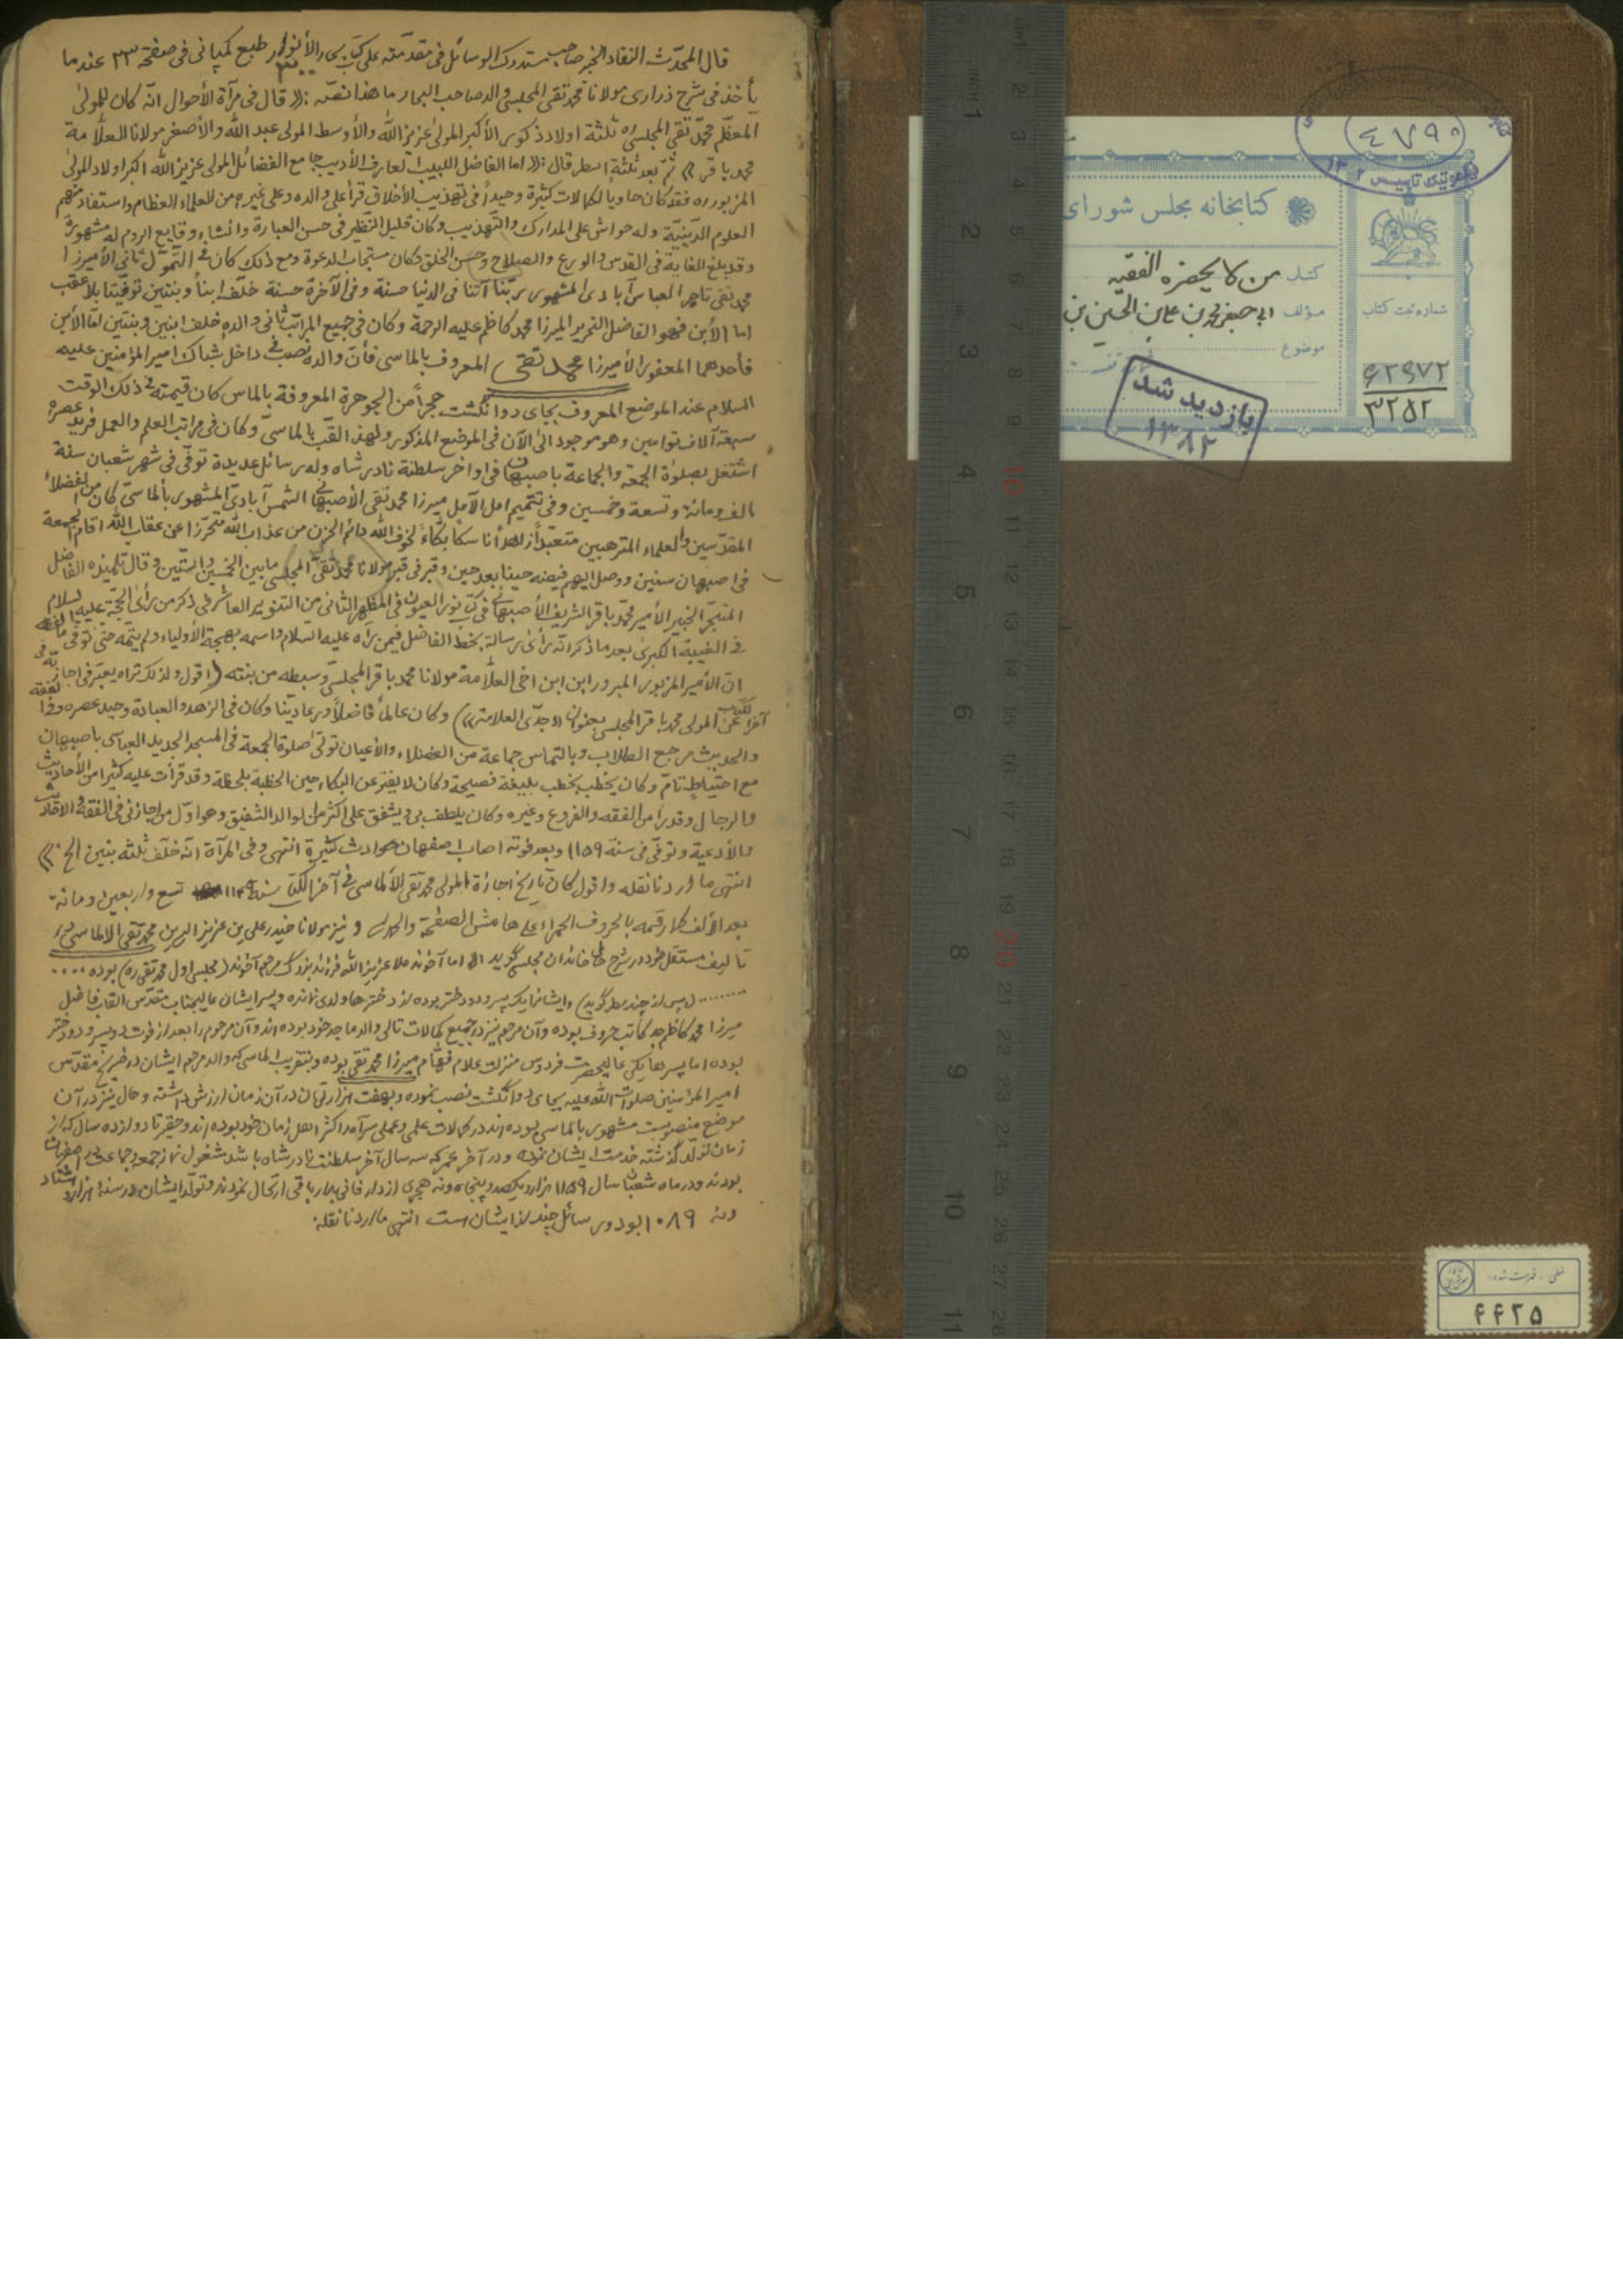 قال المحدّث النقاد الخبير صاحب مستدرك الوسائل فى مقدمته على كتاب بحار الأنوار طبع كمپانى فى صفحة ٢٣ عند ما
يأخذ فى شرح ذرارى مولانا محمد تقى المجلسى والد صاحب البحار ما هذا نصّه :(( قال فى مرآة الأحوال انّه كان للمولى
المعظّم محمّد تقى المجلسى ره ثلثة اولاد ذكور الأكبر المولى عزيز الله والأوسط المولى عبد الله والأصغر مولانا العلّامة
محمد باقر )) ثمّ بعد ثلثة اسطر قال :(( اما الفاضل اللبيب العارف الأديب جامع الفضائل المولى عزيز الله اكبر اولاد المولى
المزبور ره فقد كان حاويا لكمالات كثيرة وحيداً فى تهذيب الأخلاق قرأ على والده وعلى غيره من العلماء العظام واستفاد منهم
العلوم الدّينيّة وله حواش على المدارك والتّهذيب وكان قليل النّظير فى حسن العبارة وانشاء وقايع الروم له مشهورة
وقد بلغ الغاية فى القدس والورع والصلاح وحسن الخلق وكان مستجاب الدعوة ومع ذلك كان فى التّموّل ثانى الأميرزا
محمد تقى تاجر العباس آبادى المشهور بربّنا آتنا فى الدنيا حسنة وفى الآخرة حسنة خلّف ابناً وبنتين توفّيتا بلا عقب
اما الأبن فهو الفاضل النحرير الميرزا محمد كاظم عليه الرحمة وكان فى جميع المراتب ثانى والده خلف ابنين وبنتين امّا الأبن
فأحدهما المغفور الأميرزا محمد تقى المعروف بالماسى فأنّ والده نصب فى داخل شباك امير المؤمنين عليه
السلام عند الموضع المعروف بجاى دوانگشت حجراً من الجوهرة المعروفة بالماس كان قيمته فى ذلك الوقت
سبعة آلاف توامين وهو موجود الى الآن فى الموضع المذكور ولهذا لقّب بالماسى وكان فى مراتب العلم والعمل فريد عصره
اشتغل بصلوة الجمعة والجماعة باصبهان فى اواخر سلطنة نادر شاه وله رسائل عديدة توفّى فى شهر شعبان سنة
الف ومائة وتسعة وخمسين وفى تتميم امل الآمل ميرزا محمد تقى الأصبهانى الشمس آبادىّ المشهور بألماسى كان من الفضلاء
المقدّسين والعلماء المترهبين متعبّداً زاهداً ناسكا بكّاءً لخوف الله دائم الحزن من عذاب الله متحرّزا عن عقاب الله اقام الجمعة
فى اصبهان سنين ووصل اليهم فيضه حينا بعد حين وقبر فى قبر مولانا محمد تقى المجلسى ما بين الخمسين والستّين وقال تلميذه الفاضل
المتبحّر الخبير الأمير محمّد باقر الشريف الأصبهانى فى كتاب نور العيون فى المظهر الثانى من التنوير العاشر فى ذكر من رأى الحجّة عليه السلام
فى الغيبة الكبرى بعد ما ذكر انّه رأى رسالة بخط الفاضل فيمن رآه عليه السّلام واسمه بهجة الأولياء ولم يتمّه حتّى توفى
انّ الأمير المزبور المبرور ابن ابن اخى العلّامة مولانا محمد باقر المجلسىّ وسبطه من بنته (اقول ولذلك تراه يعبّر فى اجازته فى
آخر الكتاب عن المولى محمد باقر المجلسى بعنوان ((جدّى العلامة))) وكان عالماً فاضلاً ورعا ديّنا وكان فى الزهد والعبادة وحيد عصره وفى الفقه
والحديث مرجع الطلاب وبالتماس جماعة من الفضلاء والأعيان تولّى صلوة الجمعة فى المسجد الجديد العباسى باصبهان
مع احتياطٍ تامّ وكان يخطب بخطب بليغة فصيحة وكان لا يفتر عن البكاء حين الخطبة بلحظة وقد قرأت عليه كثيرا من الأحاديث
والرجال وقدرا من الفقه والفروع وغيره وكان يلطف بى ويشفق علىّ اكثر من الوالد الشفيق وهو اوّل من اجازنى فى الفقه والأحاديث
والأدعية وتوفّى فى سنة ١١٥٩ وبعد فوته اصاب اصفهان حوادث كثيرة انتهى وفى المرآة انّه خلّف ثلثة بنين الخ ))
انتهى ما اردنا نقله واقول كان تاريخ اجازة المولى محمد تقى الألماسى فى آخر الكتاب سنة ١١٤٩ تسع واربعين ومائة
بعد الألف كما رقمه بالحروف الحمراء على هامش الصفحة و نيز مولانا حيدر على بن عزيز الدين محمد تقى الالماسى در
تاليف مستقل خود در شرح حال خاندان مجلسى گويد اما آخوند ملا عزيز الله فرزند بزرگ مرحوم آخوند (مجلسى اول محمد تقى ره) بوده ....
........ (پس از چند سطر گويد) وايشانرا يك پسر ودو دختر بوده از دخترها ولدى نمانده وپسر ايشان عاليجناب مقدّس القاب فاضل
ميرزا محمد كاظم جد كاتب حروف بوده وآن مرحوم نيز در جميع كمالات تالى والد ماجد خود بوده اند وآن مرحوم را بعد از فوت دو پسر ودو دختر
بوده اما پسرها يكى عاليحضرت فردوس منزلت علّام فهّام ميرزا محمد تقى بوده وبتقريب الماسى كه والد مرحوم ايشان در ضريح مقدّس
امير المؤمنين صلوات الله عليه بجاى دوانگشت نصب نموده وبهفت هزار تومان در آن زمان ارزش داشته وحال نيز در آن
موضع منصوبست مشهور بالماسى بوده اند در كمالات علمى وعملى سرآمد اكثر اهل زمان خود بوده اند وحقير تا دوازده سال كه از
زمان تولّد گذشته خدمت ايشان نموده ودر آخر عمر كه سه سال آخر سلطنت نادر شاه باشد مشغول نماز جمعه وجماعت در اصفهان
بودند ودر ماه شعبان سال ١١٥٩ هزار ويكصد وپنجاه ونه هجرى از دار فانى بدار باقى ارتحال نمودند وتولّد ايشان در سنهٔ هزار وهشتاد
ونه ١٠٨٩ بود ورسائل چند از ايشان است انتهى ما اردنا نقله
٤٧٩٠
تأسيس ١٣٠٢
كتابخانه مجلس شوراى
كتاب من لا يحضره الفقيه
مؤلف ابى جعفر محمد بن على بن الحسين بن
موضوع
شماره ثبت كتاب
٦٢٩٧٢
٣٢٥٢
بازديد شد
١٣٨٢
خطى - فهرست شده
٤٤٢٥
cm1 2 3 4 5 6 7 8 9 10 11 12 13 14 15 16 17 18 19 20 21 22 23 24 25 26 27 28
INCH 1 2 3 4 5 6 7 8 9 10 11